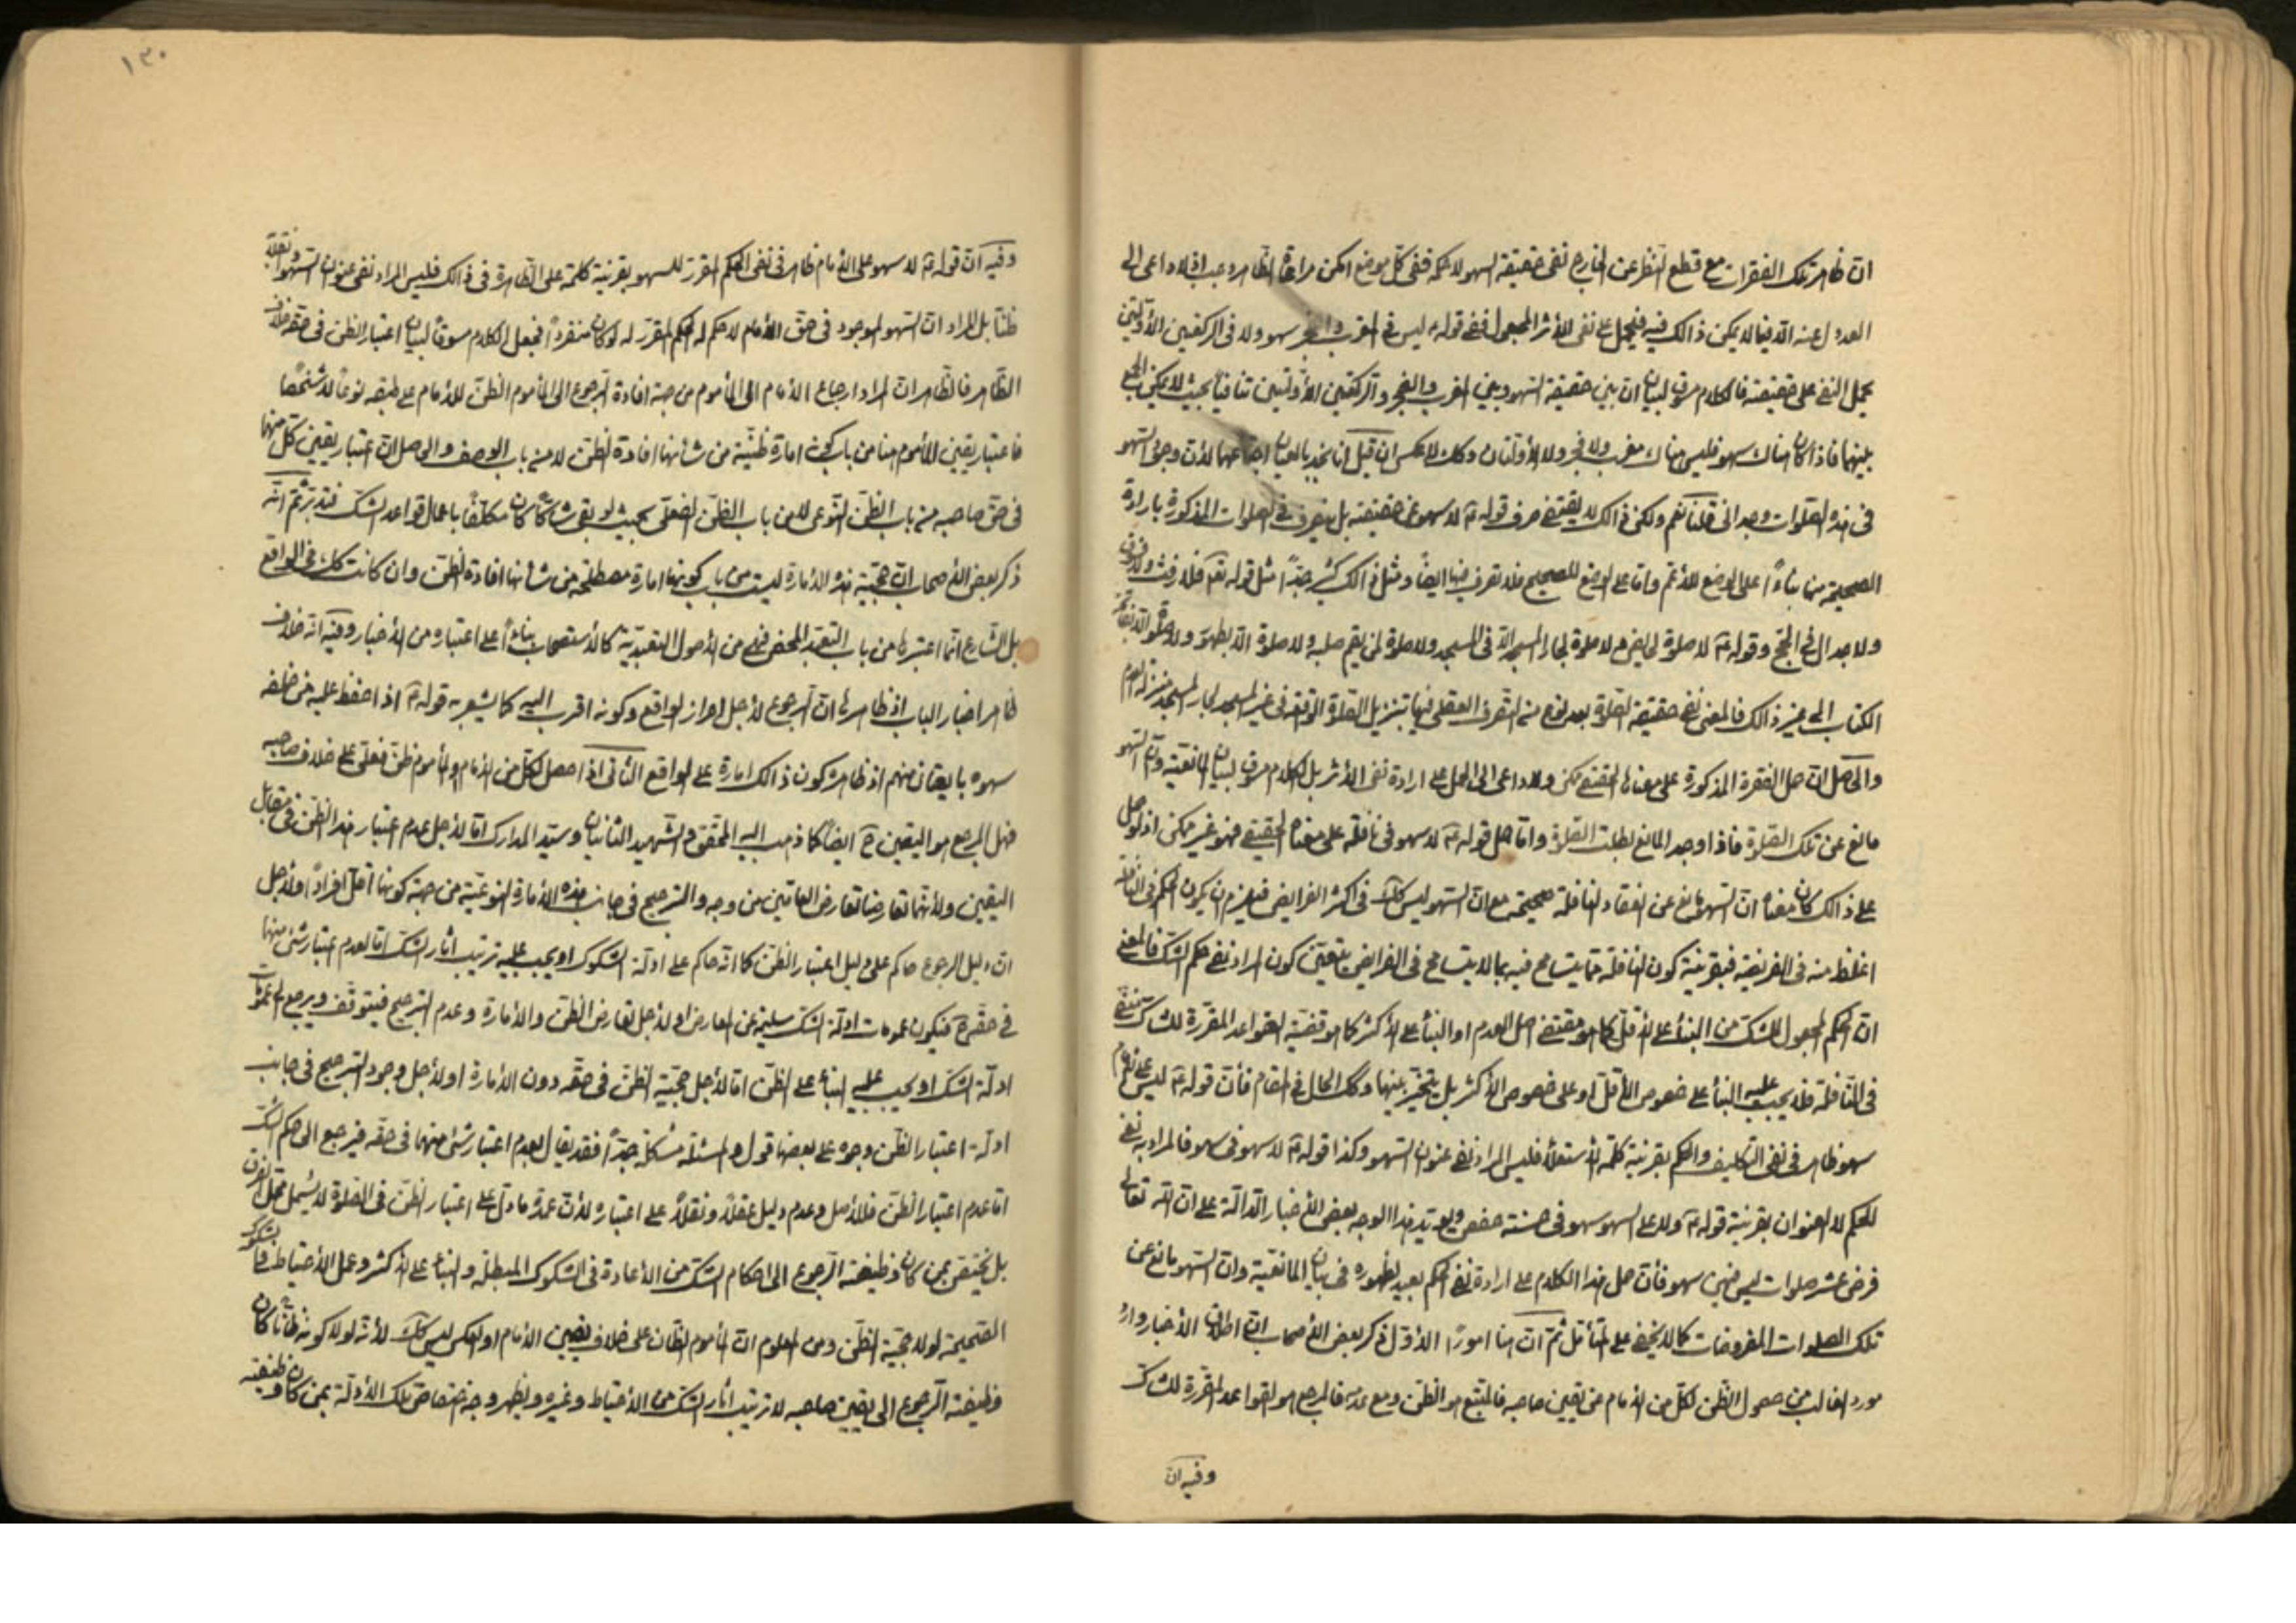 ان ظاهر تلك الفقرات مع قطع النظر عن الخارج نفى حقيقة السهو لا حكمه ففى كل موضع امكن مراعاة الظاهر وجب اذ لا داعى الى
العدول عنه الا فيما لا يمكن ذالك فيه فيحمل على نفى الأثر المجعول ففى قوله ليس فى المغرب والفجر سهو ولا فى الركعتين الأوليين
يحمل النفى على حقيقته فالكلام مسوق لبيان ان بين حقيقة السهو وبين المغرب والفجر والركعتين الأوليين تنافيا بحيث لا يمكن الجمع
بينهما فاذا كان هناك سهو فليس هناك مغرب ولا فجر ولا الأولتان وكك العكس ان قبل انا نجد بالعيان اجتماعهما لأن وجود السهو
فى هذه الصلوات وجدانى قلنا نعم ولكن ذالك لا يقتضى صرف قوله ع لا سهو عن حقيقته بل يتصرف فى الصلوات المذكورة بارادة
الصحيحة منها بناءً على الوضع للأعم واما على الوضع للصحيح فلا تصرف فيها ايضا ومثل ذالك كثير جدّاً مثل قوله تعالى فلا رفث ولا فسوق
ولا جدال فى الحج وقوله ع لا صلوة لحايض ولا صلوة لجار المسجد الا فى المسجد ولا صلوة لمن لم يقم صلبه ولا صلوة الا بطهور ولا صلوة الا بفاتحة
الكتاب الى غير ذالك فالمعنى نفى حقيقة الصلوة بعد نوع من التصرف العقلى فيها بتنزيل الصلوة الواقعة فى غير المسجد لجار المسجد منزلة العدم
والحاصل ان حمل الفقرة المذكورة على معناها الحقيقى ممكن ولا داعى الى الحمل على ارادة نفى الأثر بل الكلام مسوق لبيان المانعية وان السهو
مانع عن تلك الصلوة فاذا وجد المانع بطلت الصلوة واما حمل قوله ع لا سهو فى نافلة على معناه الحقيقى فهو غير ممكن اذ لو حمل
على ذالك كان معناه ان السهو مانع عن انعقاد النافلة صحيحة مع ان السهو ليس كك فى اكثر الفرايض فيلزم ان يكون الحكم فى النافلة
اغلظ منه فى الفريضة فبقرينة كون النافلة مما يتسامح فيه بما لا يتسامح فى الفرايض يتعين كون المراد نفى حكم الشك فالمعنى
ان الحكم المجعول للشك من البناء على الأقل كما هو مقتضى اصل العدم او البناء على الأكثر كما هو قضية القواعد المقررة للشاك منفى
فى النافلة فلا يجب عليه البناء على خصوص الأقل او على خصوص الأكثر بل يتخير بينهما وكك الحال فى المقام فان قوله ع ليس على الامام
سهو ظاهر فى نفى التكليف والحكم بقرينة كلمة الاستعلاء فليس المراد نفى عنوان السهو وكذا قوله ع لا سهو فى سهو فالمراد به نفى
للحكم لا العنوان بقرينة قوله ع ولا على السهو سهو فى حسنة حفص ويؤيد هذا الوجه بعض الأخبار الدالة على ان الله تعالى
فرض عشر صلوات ليس فيهن سهو فان حمل هذا الكلام على ارادة نفى الحكم بعيد لظهوره فى بيان المانعية وان السهو مانع عن
تلك الصلوات المفروضات كما لا يخفى على المتأمل ثم ان هنا امورًا الأول ذكر بعض الأصحاب ان اطلاق الأخبار وارد
مورد الغالب من حصول الظن لكل من الامام من يقين صاحبه فالمتبع هو الظن ومع عدمه فالمرجع هو القواعد المقررة للشاك
وفيه ان
١٣٠
وفيه ان قوله ع لا سهو على الامام ظاهر فى نفى الحكم المقرر للسهو بقرينة كلمة على الظاهرة فى ذالك فليس المراد نفى عنوان السهو
ظنّا بل المراد ان السهو الموجود فى حق الامام لا حكم له الحكم المقرر له لو كان منفردا فجعل الكلام مسوقا لبيان اعتبار الظن فى حقه خلاف
الظاهر فالظاهر ان المراد ارجاع الامام الى المأموم من جهة افادة الرجوع الى المأموم الظن للامام على طبقه نوعًا لا شخصًا
فاعتبار يقين المأموم هنا من باب كونه امارة ظنية من شأنها افادة الظن لا من باب الوصف والحاصل ان اعتبار يقين كل منهما
فى حق صاحبه من باب الظن النوعى لا من باب الظن الفعلى بحيث لو بقى شاكا كان مكلفا باعمال قواعد الشك فتدبر ثم انه
ذكر بعض الأصحاب ان حجية هذه الامارة ليست من باب كونها امارة مصطلحه من شأنها افادة الظن وان كانت كك فى الواقع
بل الشارع انما اعتبرها من باب التعبد المحض فهى من الأصول التعبدية كالاستصحاب بناءً على اعتباره من الأخبار وفيه انه خلاف
ظاهر اخبار الباب اذ ظاهرها ان الرجوع لأجل احراز الواقع وكونه اقرب اليه كما يشعر به قوله ع اذا حفظ عليه من خلفه
سهوه بايقان منهم اذ ظاهره كون ذالك امارة على الواقع الثانى اذا حصل لكل من الامام والمأموم ظن فعلى على خلاف صاحبه
فهل المرجع هو اليقين ح ايضا كما ذهب اليه المحقق والشهيد الثانيان وسيد المدارك اما لأجل عدم اعتبار هذا الظن فى مقابل
اليقين ولأنهما تعارضا تعارض العامين من وجه والترجيح فى جانب هذه الامارة النوعية من جهة كونها اقل افرادًا ولأجل
ان دليل الرجوع حاكم على دليل اعتبار الظن كما انه حاكم على ادلة الشكوك او يجب عليه ترتيب اثار الشك اما لعدم اعتبار شئ منهما
فى حقه ح فيكون عمومات ادلة الشك سليمة عن المعارض او لأجل تعارض الظن والامارة وعدم الترجيح فيتوقف ويرجع الى عمومات
ادلة الشك او يجب عليه البناء على الظن اما لأجل حجية الظن فى حقه دون الامارة او لأجل وجود الترجيح فى جانب
ادلة اعتبار الظن وجوه على بعضها قول والمسئلة مشكلة جدّاً فقد يقال بعدم اعتبار شئ منهما فى حقه فيرجع الى حكم الشك
اما عدم اعتبار الظن فللأصل وعدم دليل عقلا ونقلا على اعتباره لأن عمدة ما دل على اعتبار الظن فى الصلوة لا يشمل محل الفرض
بل يختص بمن كان وظيفته الرجوع الى احكام الشك من الاعادة فى الشكوك المبطلة والبناء على الأكثر وعمل الاحتياط فى الشكوك
الصحيحة لولا حجية الظن ومن المعلوم ان المأموم الظان على خلاف يقين الامام او العكس ليس كك لأنه لو لا كونه ظانا كان
وظيفته الرجوع الى يقين صاحبه لا ترتيب اثار الشك من الاحتياط وغيره ولظهر وجه اختصاص تلك الأدلة بمن كان وظيفته